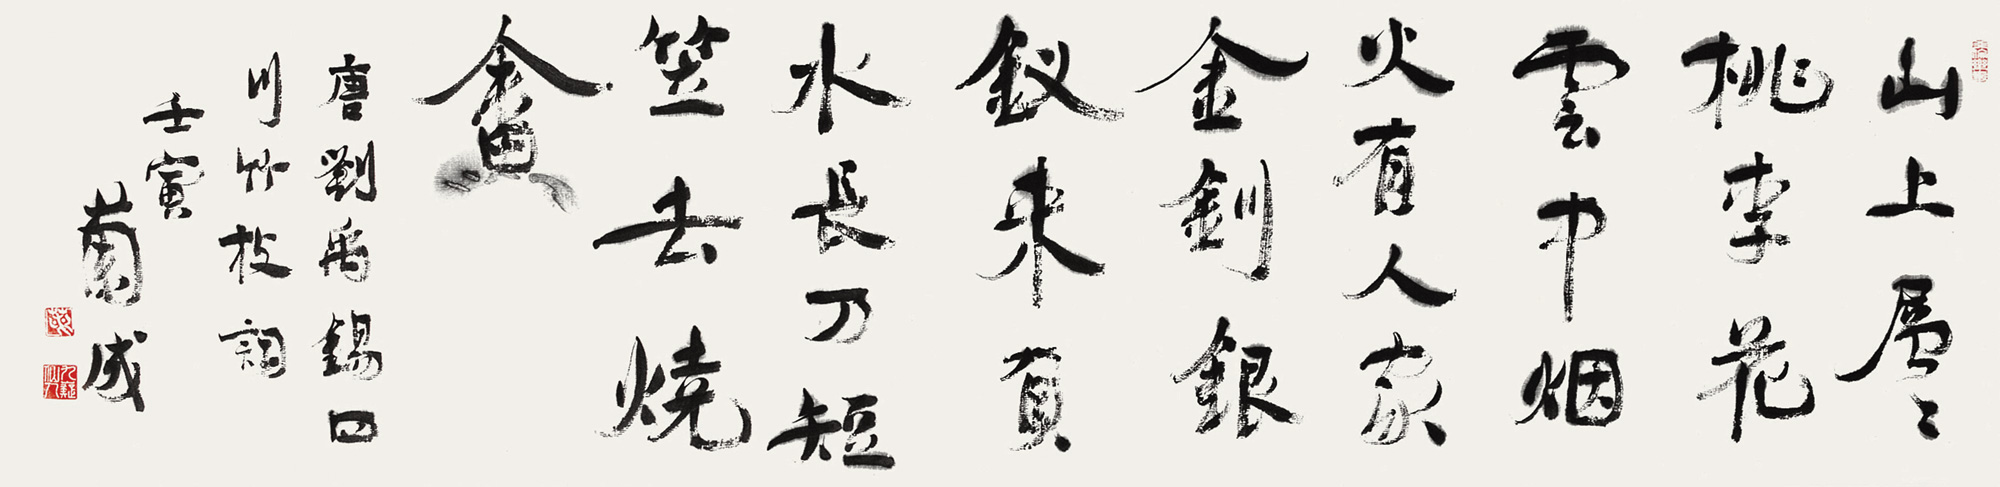 山上層〻
桃李花
雲中烟
火有人家
金釧銀
釵来負
水長刀短
笠去燒
畬
唐劉禹錫四
川竹枝詞
壬寅
成